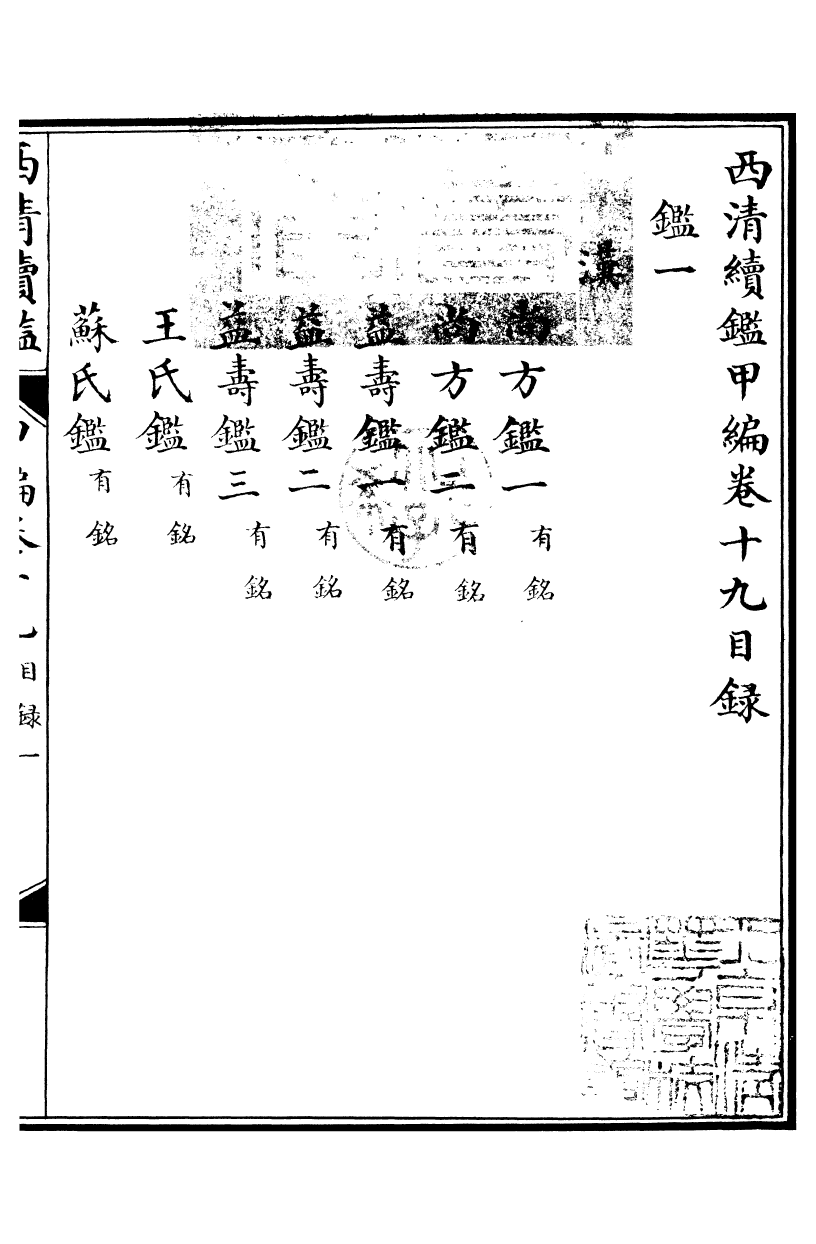 西清續鑑甲編卷十九目録
鑑一
漢
尚方鑑一有銘
尚方鑑二有銘
益壽鑑一有銘
益壽鑑二有銘
益壽鑑三有銘
王氏鑑有銘
蘇氏鑑有銘
目録一